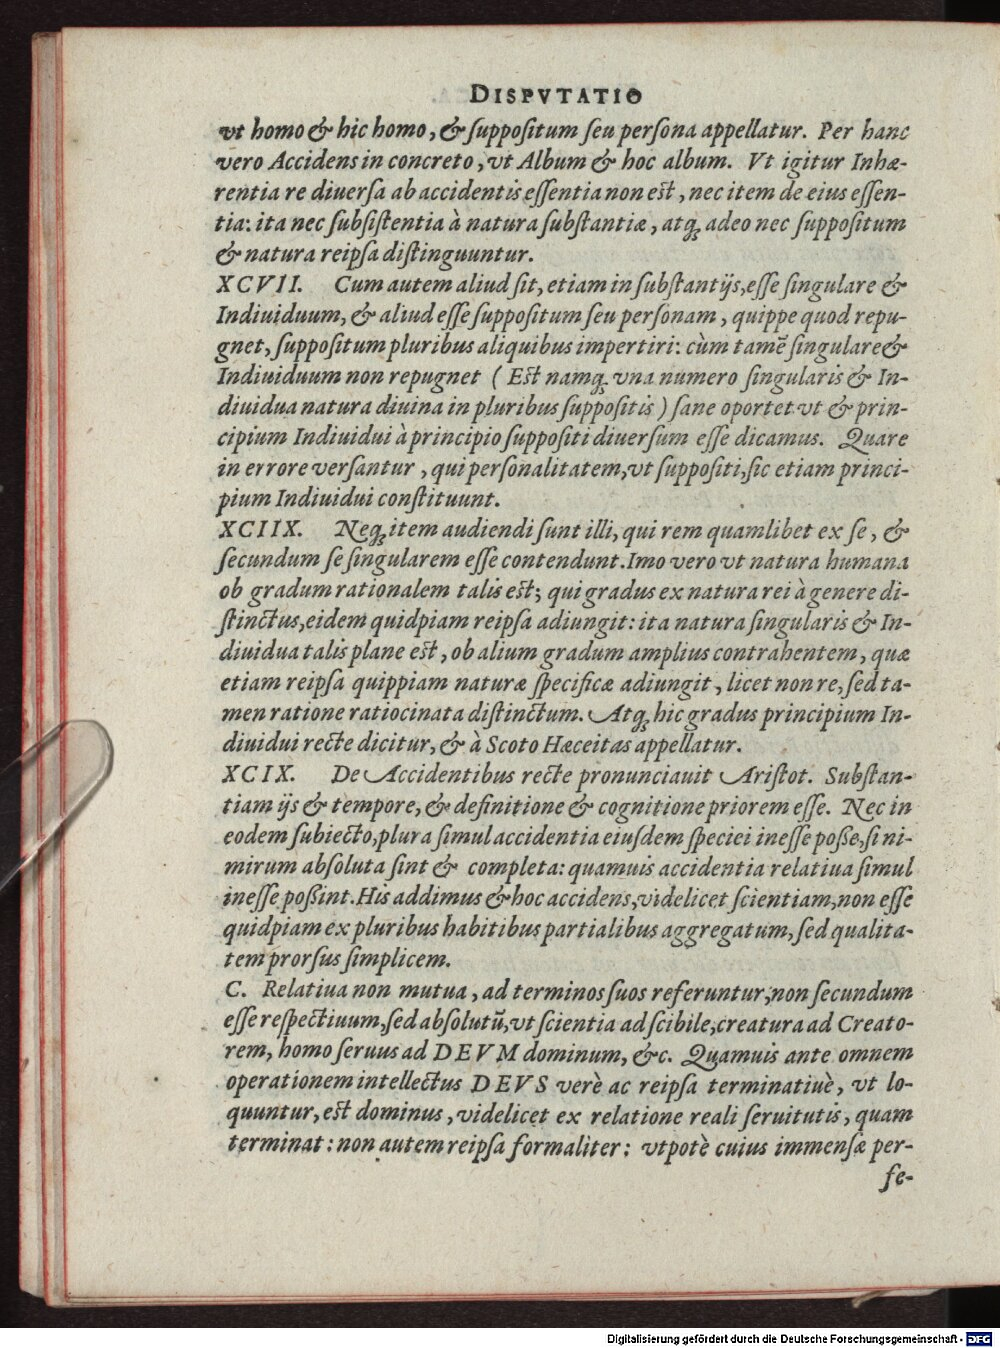 DISPVTATIO
vt homo & hic homo, & ſuppoſitum ſeu perſona appellatur. Per hanc
vero Accidens in concreto, vt Album & hoc album. Vt igitur Inhæ-
rentia re diuerſa ab accidentis eſſentia non eſt, nec item de eius eſſen-
tia: ita nec ſubſiſtentia à natura ſubſtantiæ, atq; adeo nec ſuppoſitum
& natura reipſa diſtinguuntur.
XCVII. Cum autem aliud ſit, etiam in ſubſtantijs, eſſe ſingulare &
Indiuiduum, & aliud eſſe ſuppoſitum ſeu perſonam, quippe quod repu-
gnet, ſuppoſitum pluribus aliquibus impertiri: cùm tamẽ ſingulare &
Indiuiduum non repugnet ( Eſt namq; vna numero ſingularis & In-
diuidua natura diuina in pluribus ſuppoſitis ) ſane oportet vt & prin-
cipium Indiuidui à principio ſuppoſiti diuerſum eſſe dicamus. Quare
in errore verſantur, qui perſonalitatem, vt ſuppoſiti, ſic etiam princi-
pium Indiuidui conſtituunt.
XCIIX. Neq; item audiendi ſunt illi, qui rem quamlibet ex ſe, &
ſecundum ſe ſingularem eſſe contendunt. Imo vero vt natura humana
ob gradum rationalem talis eſt; qui gradus ex natura rei à genere di-
ſtinctus, eidem quidpiam reipſa adiungit: ita natura ſingularis & In-
diuidua talis plane eſt, ob alium gradum amplius contrahentem, quæ
etiam reipſa quippiam naturæ ſpecificæ adiungit, licet non re, ſed ta-
men ratione ratiocinata diſtinctum. Atq; hic gradus principium In-
diuidui recte dicitur, & à Scoto Hæceitas appellatur.
XCIX. De Accidentibus recte pronunciauit Ariſtot. Subſtan-
tiam ijs & tempore, & definitione & cognitione priorem eſſe. Nec in
eodem ſubiecto, plura ſimul accidentia eiuſdem ſpeciei ineſſe poſſe, ſi ni-
mirum abſoluta ſint & completa: quamuis accidentia relatiua ſimul
ineſſe poſſint. His addimus & hoc accidens, videlicet ſcientiam, non eſſe
quidpiam ex pluribus habitibus partialibus aggregatum, ſed qualita-
tem prorſus ſimplicem.
C. Relatiua non mutua, ad terminos ſuos referuntur, non ſecundum
eſſe reſpectiuum, ſed abſolutũ, vt ſcientia ad ſcibile, creatura ad Creato-
rem, homo ſeruus ad DEVM dominum, &c. Quamuis ante omnem
operationem intellectus DEVS verè ac reipſa terminatiuè, vt lo-
quuntur, eſt dominus, videlicet ex relatione reali ſeruitutis, quam
terminat: non autem reipſa formaliter: vtpotè cuius immenſæ per-
fe-
Digitalisierung gefördert durch die Deutsche Forschungsgemeinschaft - DFG